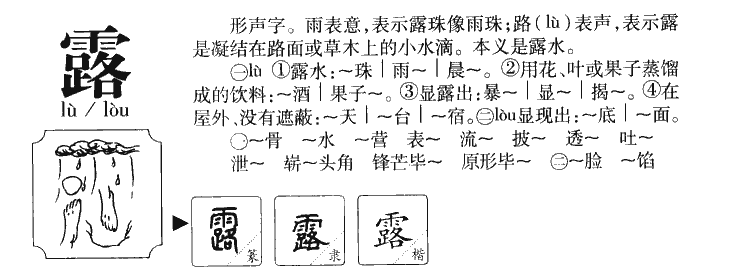 露
lù / lòu
形声字。雨表意,表示露珠像雨珠;路(lù)表声,表示露
是凝结在路面或草木上的小水滴。本义是露水。
㊀lù ①露水:~珠｜雨~｜晨~。②用花、叶或果子蒸馏
成的饮料:~酒｜果子~。③显露出:暴~｜显~｜揭~。④在
屋外、没有遮蔽:~天｜~台｜~宿。㊁lòu显现出:~底｜~面。
㊀~骨 ~水 ~营 表~ 流~ 披~ 透~ 吐~
泄~ 崭~头角 锋芒毕~ 原形毕~ ㊁~脸 ~馅
露 篆
露 隶
露 楷